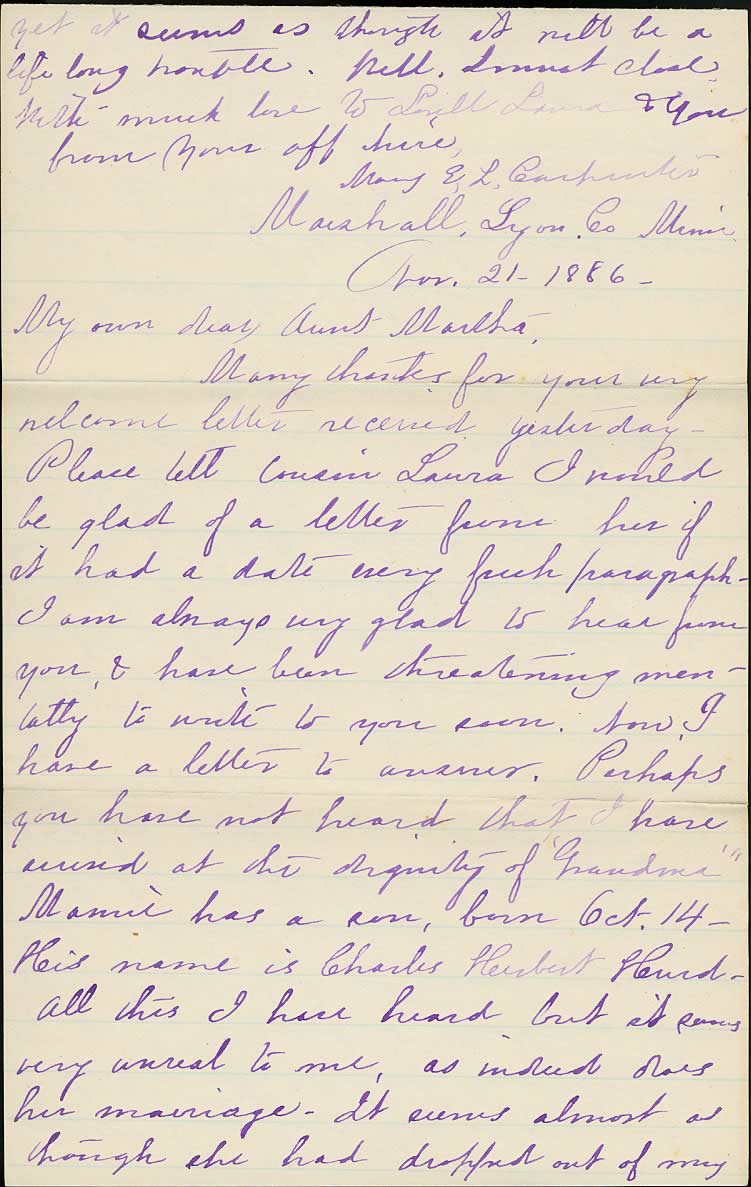 yet it seems as though it will be a
life long trouble. Well. I must close.
With much love to Lovell Laura & you
from your aff niece,
Mary E. L. Carpenter
Marshall, Lyon. Co Minn.
Nov. 21 - 1886 -
My own dear Aunt Martha,
Many thanks for your very
welcome letter received yesterday -
Please tell Cousin Laura I would
be glad of a letter from her if
it had a date every fresh paragraph -
I am always very glad to hear from
you, & have been threatening men-
tally to write to you soon. Now, I
have a letter to answer. Perhaps
you have not heard that I have
arrived at the dignity of "Grandma"
Mamie has a son, born Oct. 14 -
His name is Charles Herbert Hurd -
All this I have heard but it seems
very unreal to me, as indeed does
her marriage - It seems almost as
though she had dropped out of my